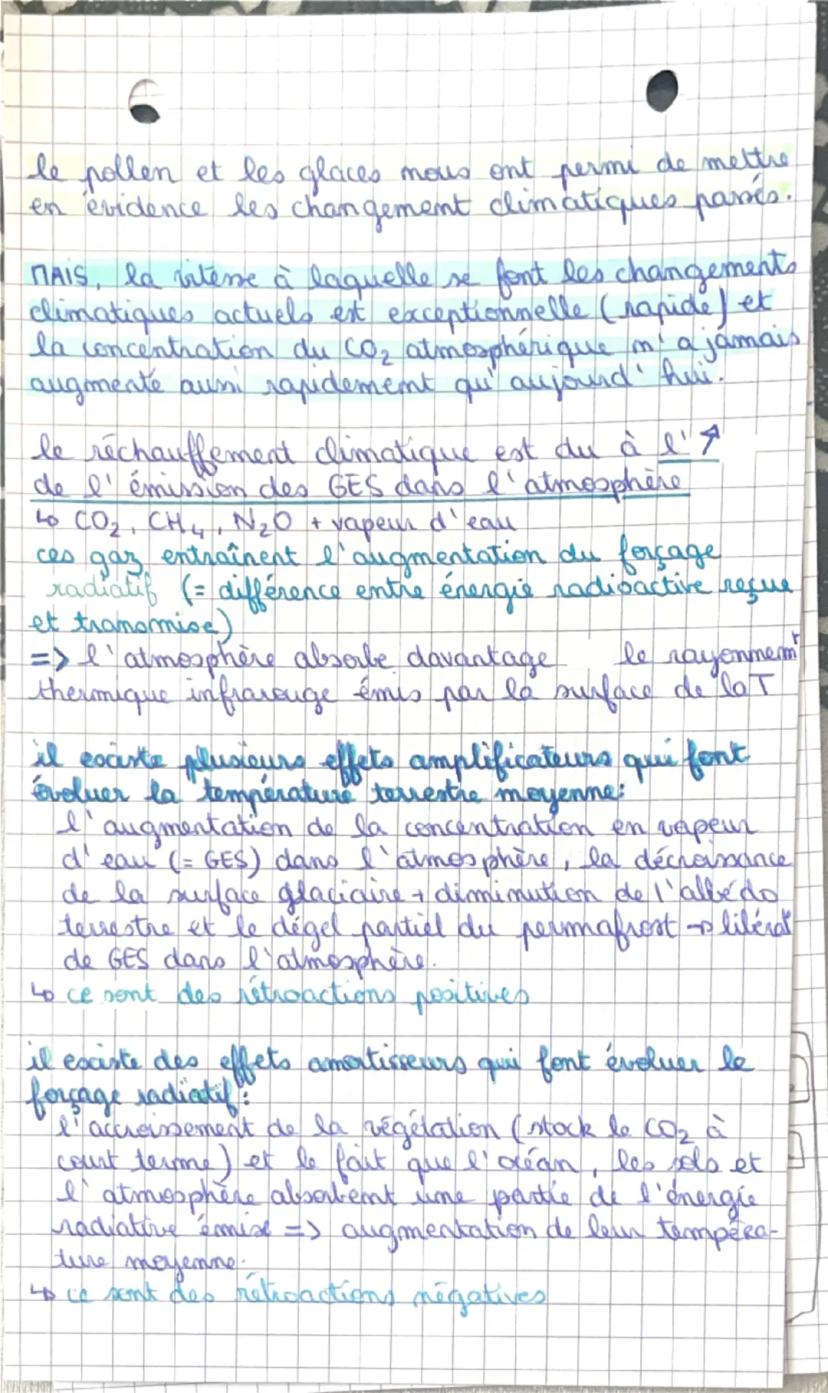 le pollen et les glaces nous ont permi de mettre
en évidence les changement climatiques passés.
MAIS, la vitesse à laquelle se font les changements
climatiques actuels est exceptionnelle (rapide) et
la concentration du CO₂ atmosphérique n'a jamais
augmenté aussi rapidement qu'aujourd'hui.
le réchauffement climatique est du à l'↗
de l'émission des GES dans l'atmosphère
↳ CO₂, CH₄, N₂O + vapeur d'eau
ces gaz entraînent l'augmentation du forçage
radiatif (= différence entre énergie radioactive reçue
et transmise)
=> l'atmosphère absorbe davantage le rayonnement
thermique infrarouge émis par la surface de la T
il existe plusieurs effets amplificateurs qui font
évoluer la température terrestre moyenne:
l'augmentation de la concentration en vapeur
d'eau (= GES) dans l'atmosphère, la décroissance
de la surface glaciaire + diminution de l'albédo
terrestre et le dégel partiel du permafrost → libérat°
de GES dans l'atmosphère.
↳ ce sont des rétroactions positives
il existe des effets amortisseurs qui font évoluer le
forçage radiatif:
l'accroissement de la végétation (stock le CO₂ à
court terme) et le fait que l'océan, les sols et
l'atmosphère absorbent une partie de l'énergie
radiative émise => augmentation de leur tempéra-
ture moyenne.
↳ ce sont des rétroactions négatives